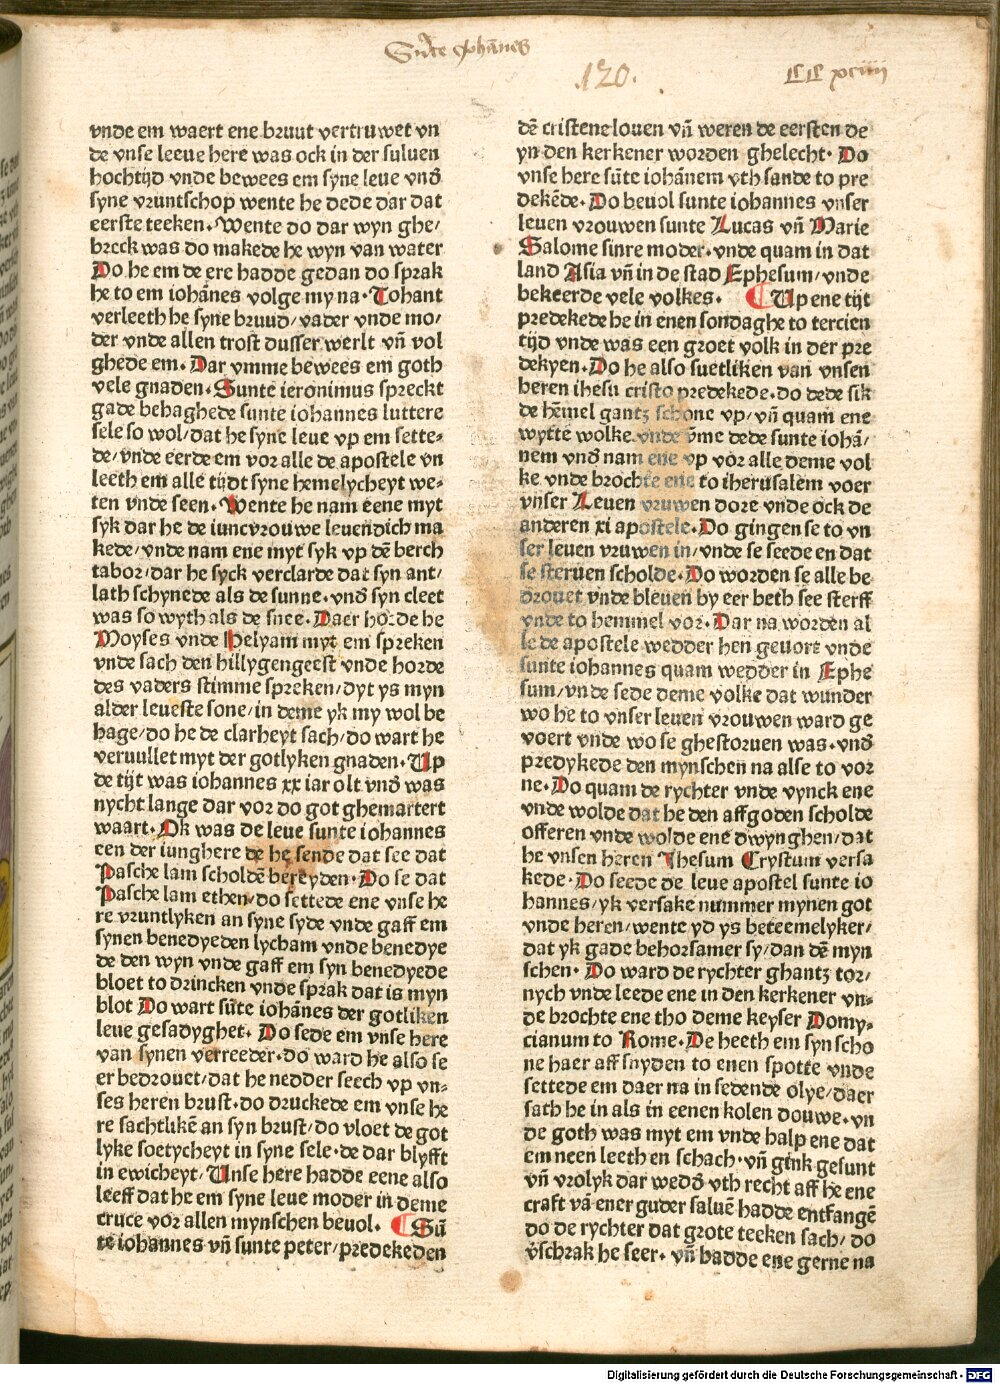 Sūte Johānes
.120.
CC xciiii
vnde em waert ene bruut vertruwet vn
de vnse leeue here was ock in der suluen
hochtijd vnde bewees em syne leue vnd̄
syne vruntschop wente he dede dar dat
eerste teeken. Wente do dar wyn ghe/
breck was do makede he wyn van water
Do he em de ere hadde gedan do sprak
he to em iohānes volge my na. Tohant
verleeth he syne bruud/vader vnde mo/
der vnde allen trost dusser werlt vn̄ vol
ghede em. Dar vmme bewees em goth
vele gnaden. Sunte ieronimus spreckt
gade behaghede sunte iohannes luttere
sele so wol/dat he syne leue vp em sette-
de/vnde eerde em vor alle de apostele vn
leeth em alle tijdt syne hemelycheyt we-
ten vnde seen. Wente he nam eene myt
syk dar he de iuncvrouwe leuendich ma
kede/vnde nam ene myt syk vp dē berch
tabor/dar he syck verclarde dat syn ant/
lath schynede als de sunne. vnd̄ syn cleet
was so wyth als de snee. Daer horde he
Moyses vnde Helyam myt em spreken
vnde sach den hillygengeest vnde horde
des vaders stimme spreken/dyt ys myn
alder leueste sone/in deme yk my wol be
hage/do he de clarheyt sach/do wart he
veruullet myt der gotlyken gnaden. Up
de tijt was iohannes xx iar olt vnd̄ was
nycht lange dar vor do got ghemartert
waart. Ok was de leue sunte iohannes
een der iunghere de he sende dat see dat
Pasche lam scholdē bereyden. Do se dat
Pasche lam ethen/do settede ene vnse he
re vruntlyken an syne syde vnde gaff em
synen benedyeden lycham vnde benedye
de den wyn vnde gaff em syn benedyede
bloet to drincken vnde sprak dat is myn
blot Do wart sūte iohānes der gotliken
leue gesadyghet. Do sede em vnse here
van synen verreeder. do ward he also se
er bedrouet/dat he nedder seech vp vn-
ses heren brust. do druckede em vnse he
re sachtlikē an syn brust/do vloet de got
lyke soetycheyt in syne sele. de dar blyfft
in ewicheyt/Unse here hadde eene also
leeff dat he em syne leue moder in deme
cruce vor allen mynschen beuol. ¶ Sū
te iohannes vn̄ sunte peter/predekeden
dē cristene louen vn̄ weren de eersten de
yn den kerkener worden ghelecht. Do
vnse here sūte iohānem vth sande to pre
dekēde. Do beuol sunte iohannes vnser
leuen vrouwen sunte Lucas vn̄ Marie
Salome sinre moder. vnde quam in dat
land Asia vn̄ in de stad Ephesum/vnde
bekeerde vele volkes. ¶ Up ene tijt
predekede he in enen sondaghe to tercien
tijd vnde was een groet volk in der pre
dekyen. Do he also suetliken van vnsen
heren ihesu cristo predekede. do dede sik
de hēmel gantz schone vp/vn̄ quam ene
wytte wolke vnde v̄me dede sunte iohā/
nem vnd̄ nam ene vp vor alle deme vol
ke vnde brochte ene to iherusalem voer
vnser Leuen vruwen dore vnde ock de
anderen xi apostele. Do gingen se to vn
ser leuen vruwen in/vnde se seede en dat
se steruen scholde. Do worden se alle be
drouet vnde bleuen by eer beth see sterff
vnde to hemmel vor. Dar na worden al
le de apostele wedder hen geuort vnde
sunte iohannes quam wedder in Ephe
sum/vnde sede deme volke dat wunder
wo he to vnser leuen vrouwen ward ge
voert vnde wo se ghestoruen was. vnd̄
predykede den mynschen na alse to vor
ne. Do quam de rychter vnde vynck ene
vnde wolde dat he den affgoden scholde
offeren vnde wolde ene dwynghen/dat
he vnsen heren Ihesum Crystum versa
kede. Do seede de leue apostel sunte io
hannes/yk versake nummer mynen got
vnde heren/wente yd ys beteemelyker/
dat yk gade behorsamer sy/dan dē myn
schen. Do ward de rychter ghantz tor/
nych vnde leede ene in den kerkener vn-
de brochte ene tho deme keyser Domy-
cianum to Rome. De heeth em syn scho
ne haer aff snyden to enen spotte vnde
settede em daer na in sedende olye/daer
sath he in als in eenen kolen douwe. vn
de goth was myt em vnde halp ene dat
em neen leeth en schach. vn̄ gink gesunt
vn̄ vrolyk dar wedd̄ vth recht aff he ene
craft vā ener guder saluē hadde entfangē
do de rychter dat grote teeken sach/do
v̄schrak he seer. vn̄ hadde ene gerne na
Digitalisierung gefördert durch die Deutsche Forschungsgemeinschaft - DFG